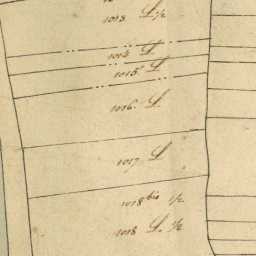 1013 L 1/2
1014 L
1015 L
1016. L
1017. L
1018 bis 1/2
1018 L. 1/2